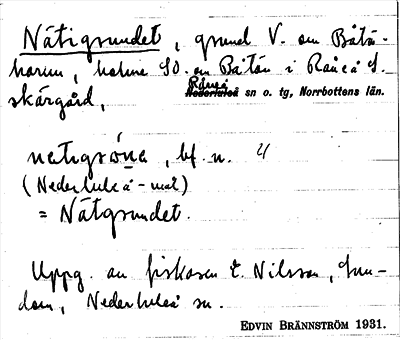 Nätigrundet, grund V. om Båtö-
harun, holme SO. om Båtön i Råneå s.
skärgård,
Råneå
Nederluleå sn o. tg, Norrbottens län.
bf. n.
(Nederluleå-mål)
= Nätgrundet.
Uppg. av fiskaren E. Nilsson,
Nederluleå sn.
EDVIN BRÄNNSTRÖM 1931.